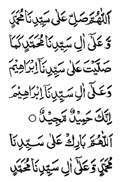 اَللّٰهُمَّ صَلِّ عَلٰى سَيِّدِنَا مُحَمَّدٍ
وَّعَلٰۤى اٰلِ سَيِّدِنَا مُحَمَّدٍ كَمَا
صَلَّيْتَ عَلٰى سَيِّدِنَاۤ اِبْرَاهِيْمَ
وَعَلٰۤى اٰلِ سَيِّدِنَاۤ اِبْرَاهِيْمَ
اِنَّكَ حَمِيْدٌ مَّجِيْدٌ ○
اَللّٰهُمَّ بَارِكْ عَلٰى سَيِّدِنَا
مُحَمَّدٍ وَّعَلٰۤى اٰلِ سَيِّدِنَا مُحَمَّدٍ